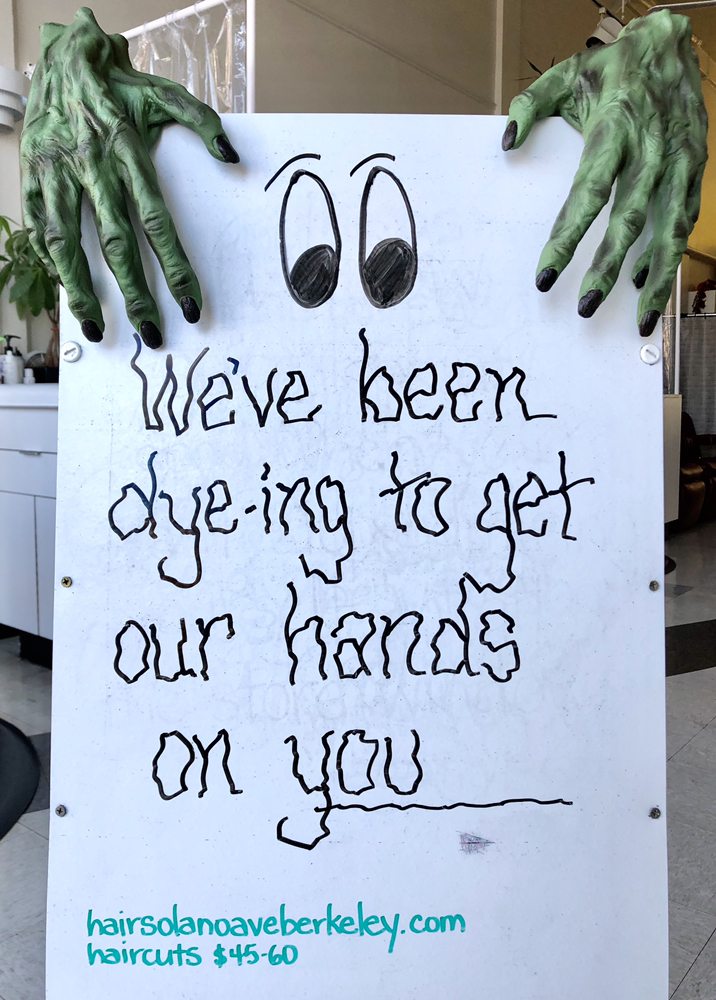 We've been
dye-ing to get
our hands
on you
hairsolanoaveberkeley.com
haircuts $45-60